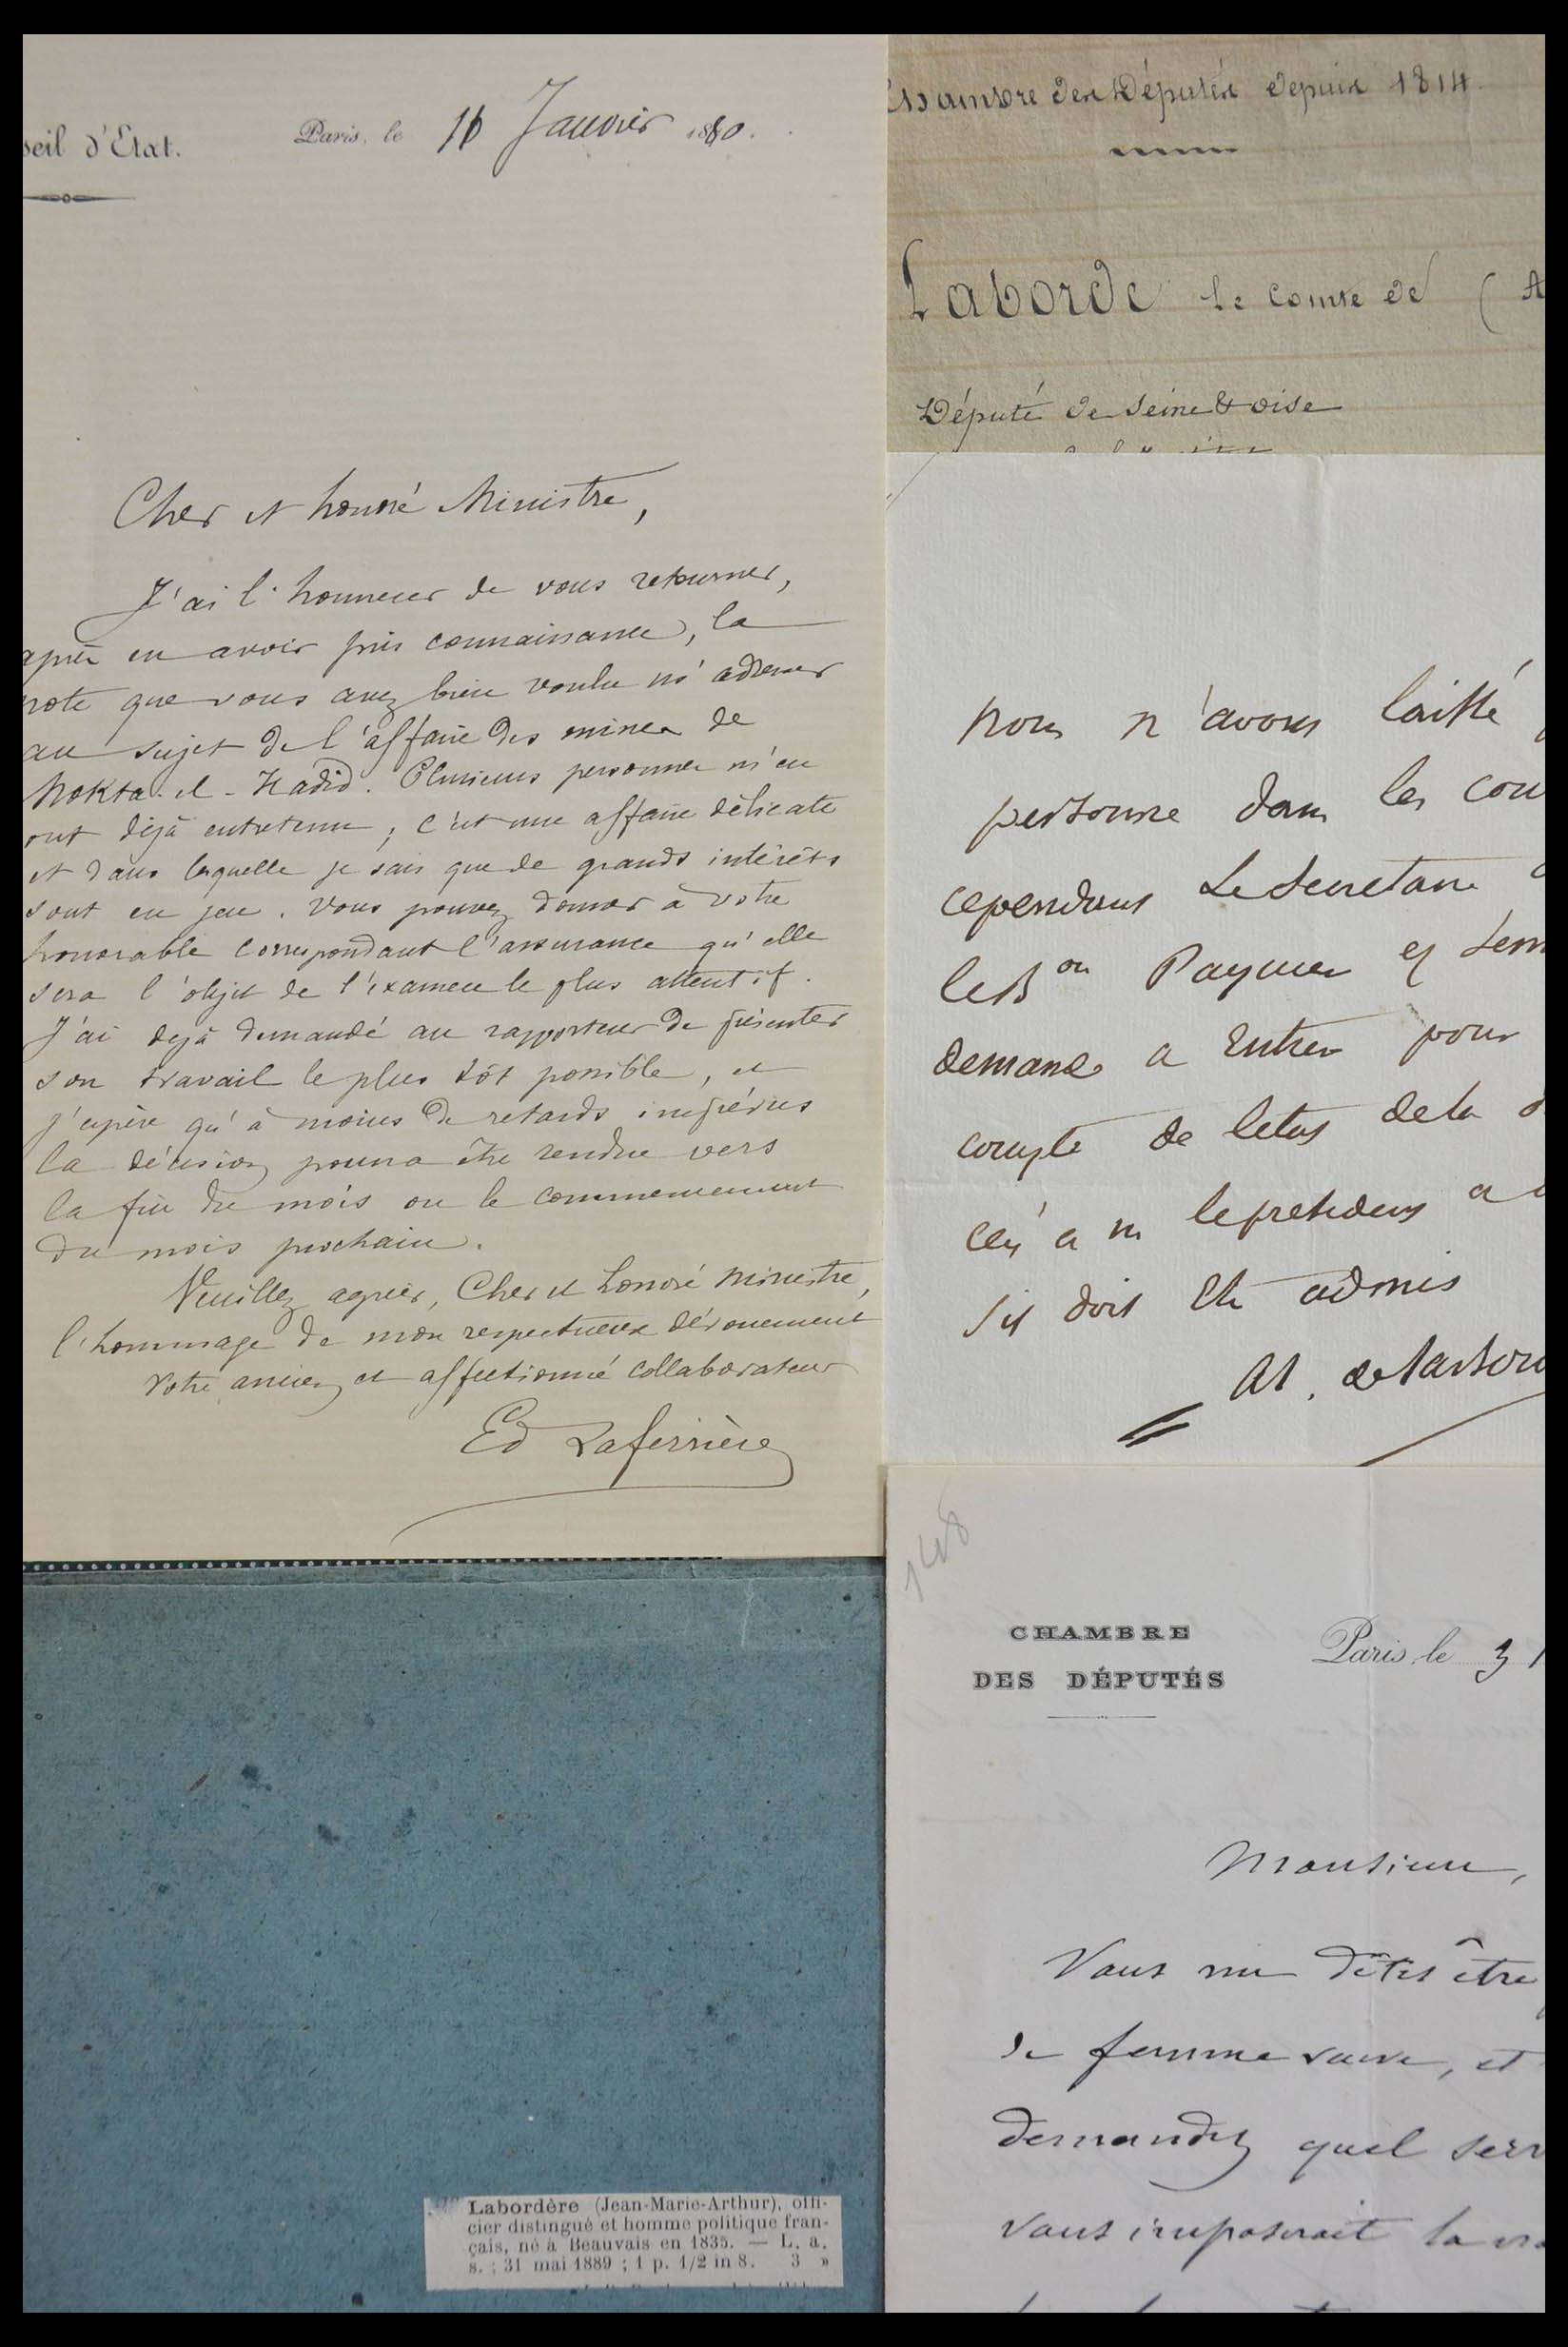 seil d'Etat.
Paris, le 16 Janvier 1880.
Cher et honoré Ministre,
J'ai l'honneur de vous retourner,
après en avoir pris connaissance, la
note que vous avez bien voulu m'adresser
au sujet de l'affaire des mines de
Mokta-el-Hadid. Plusieurs personnes m'en
ont déjà entretenu ; c'est une affaire délicate
et dans laquelle je sais que de grands intérêts
sont en jeu. Vous pouvez donner à votre
honorable correspondant l'assurance qu'elle
sera l'objet de l'examen le plus attentif.
J'ai déjà demandé au rapporteur de présenter
son travail le plus tôt possible, et
j'espère qu'à moins de retards imprévus
la décision pourra être rendue vers
la fin du mois ou le commencement
du mois prochain.
Veuillez agréer, Cher et honoré Ministre,
l'hommage de mon respectueux dévouement
Votre ancien et affectionné collaborateur
Ed Laferrière
Chambre des Députés depuis 1814.
Laborde le comte de (A
Député de Seine & oise
nous n'avons laissé
personne dans les cou
cependant Le Secretaire
le Bon Paymer
demande a entrer pour
compte de letat de la
a m le president a
sil doit etre admis
Al. de Labord
148
CHAMBRE
DES DÉPUTÉS
Paris, le 31
Monsieur,
Vous me dites être
de femme veuve, et
demandez quel serv
vous imposerait la
Labordère (Jean-Marie-Arthur), offi-
cier distingué et homme politique fran-
çais, né à Beauvais en 1835. — L. a.
s. ; 31 mai 1889 ; 1 p. 1/2 in 8. 3 »